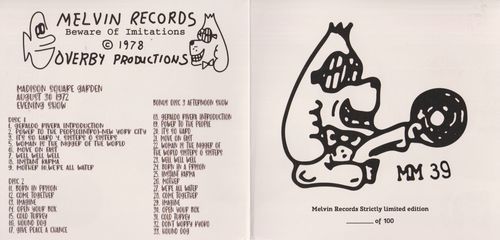 MELVIN RECORDS
Beware Of Imitations
© 1978
OVERBY PRODUCTIONS
MADISON SQUARE GARDEN
AUGUST 30 1972
EVENING SHOW
DISC 1
1. GERALDO RIVERA INTRODUCTION
2. POWER TO THE PEOPLE(INTRO)-NEW YORK CITY
3. IT'S SO HARD 4. SISTERS O SISTERS
5. WOMAN IS THE NIGGER OF THE WORLD
6. MOVE ON FAST
7. WELL WELL WELL
8. INSTANT KARMA
9. MOTHER 10.WE'RE ALL WATER
DISC 2
11. BORN IN PRISON
12. COME TOGETHER
13. IMAGINE
14. OPEN YOUR BOX
15. COLD TURKEY
16. HOUND DOG
17. GIVE PEACE A CHANCE
BONUS DISC 3 AFTERNOON SHOW
18. GERALDO RIVERA INTRODUCTION
19. POWER TO THE PEOPLE
20. IT'S SO HARD
21. MOVE ON FAST
22. WOMAN IS THE NIGGER OF
THE WORLD SISTERS O SISTERS
23. WELL WELL WELL
24. BORN IN A PRISON
25. INSTANT KARMA
26. MOTHER
27. WE'RE ALL WATER
28. COME TOGETHER
29. IMAGINE
30. OPEN YOUR BOX
31. COLD TURKEY
32. DON'T WORRY KYOKO
33. HOUND DOG
MM 39
Melvin Records Strictly limited edition
______ of 100